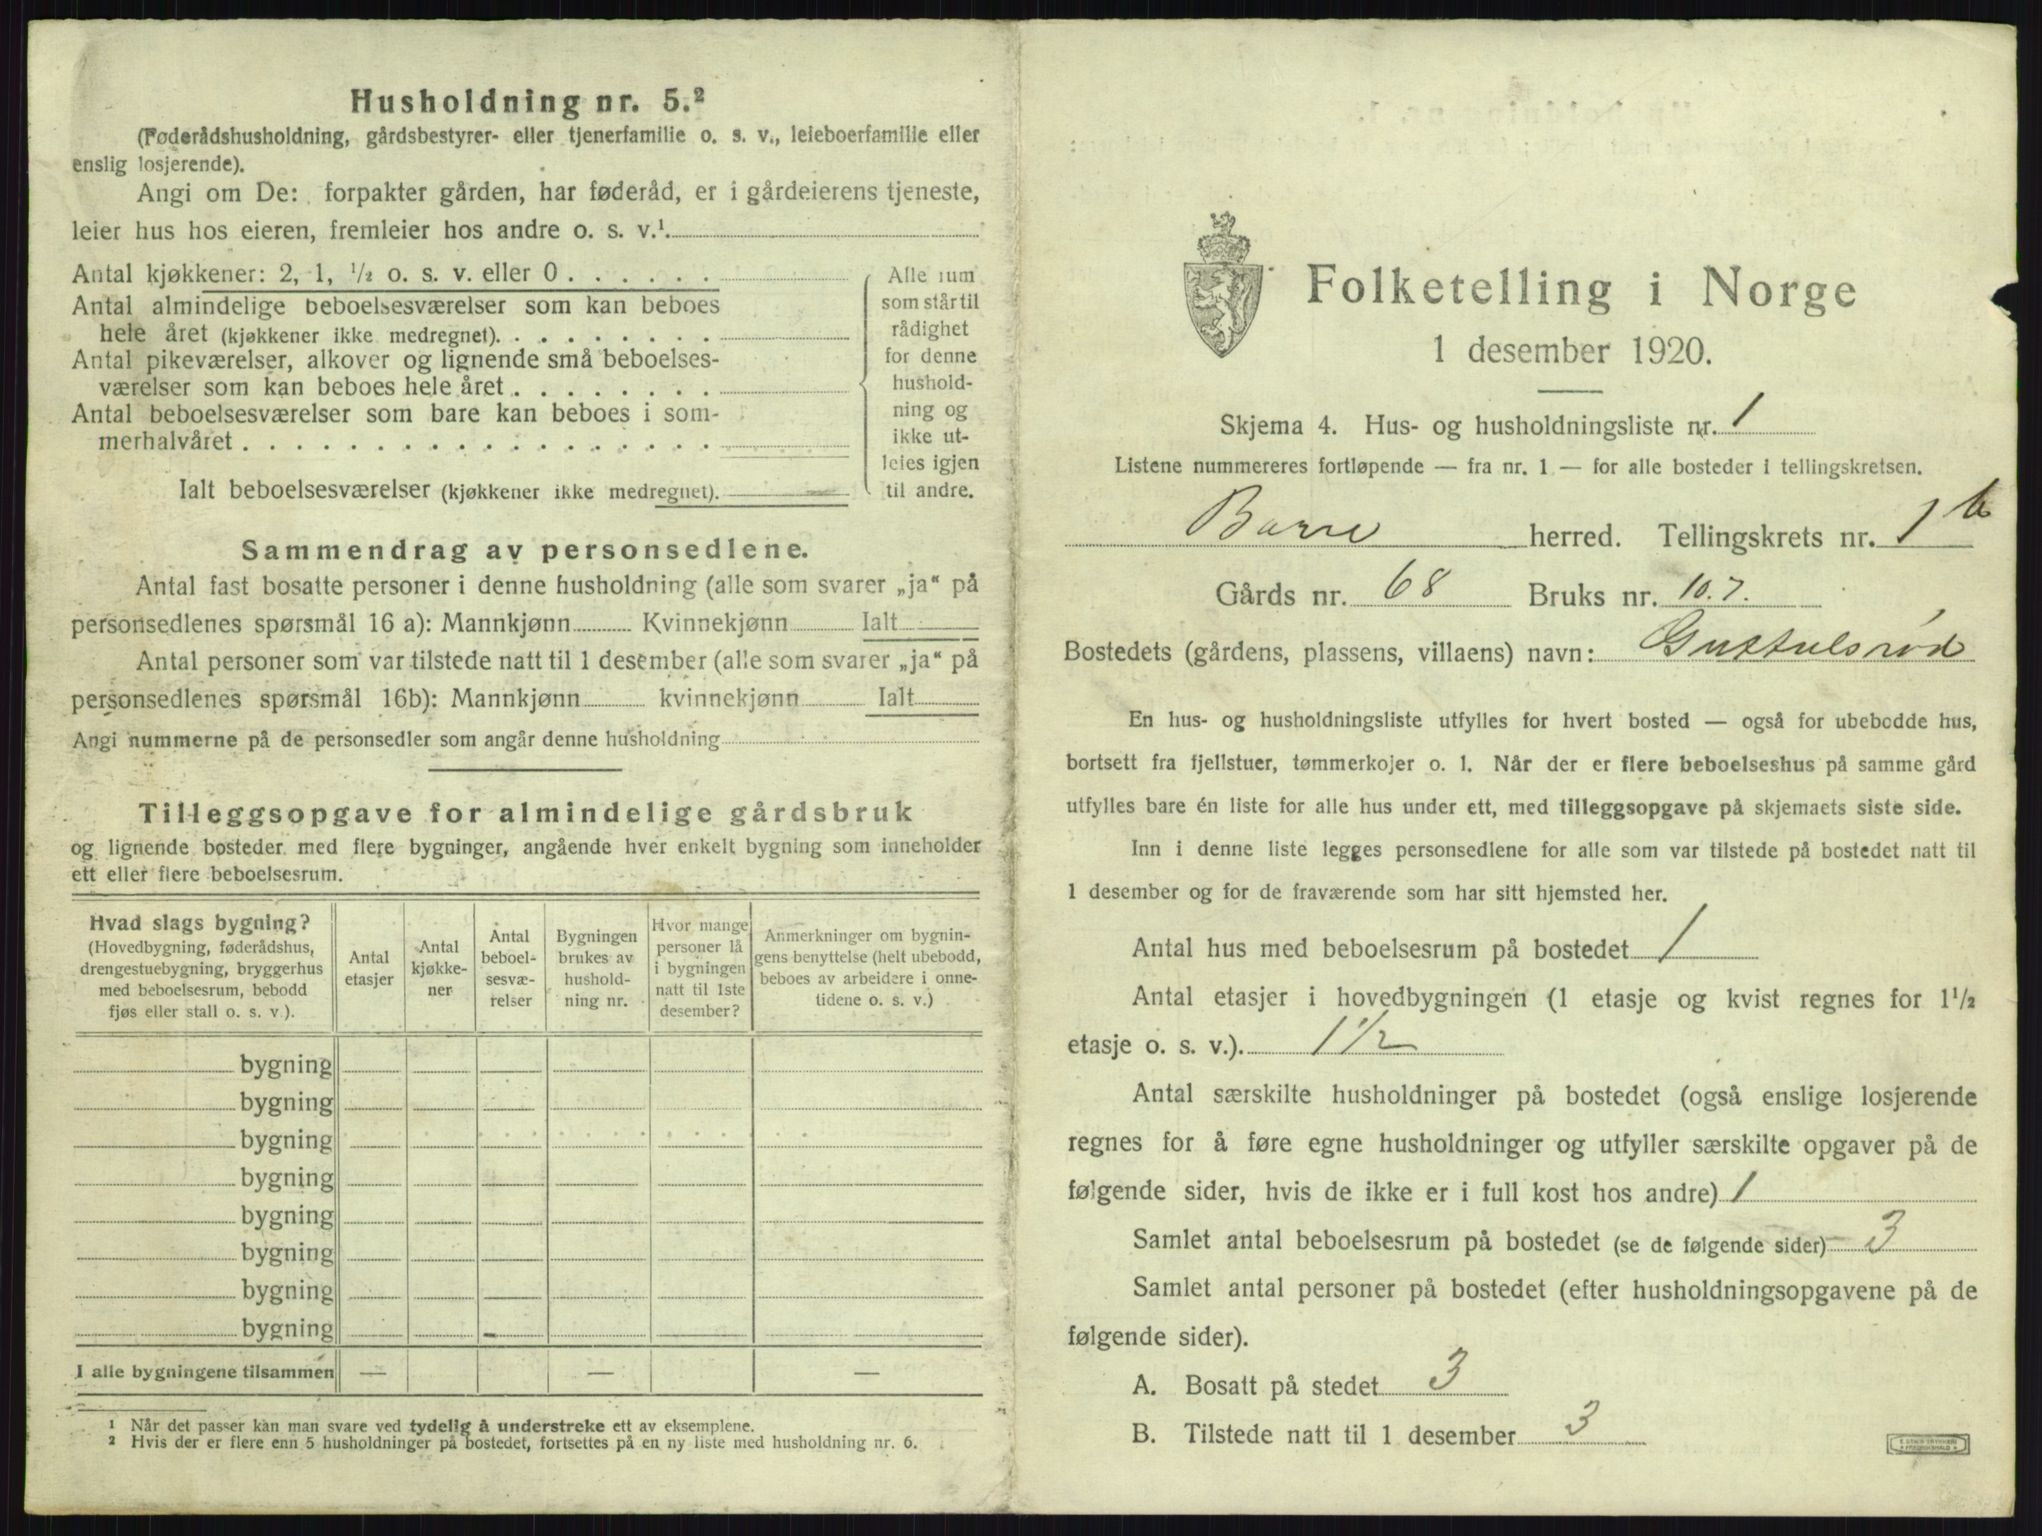 Husholdning nr. 5.²
(Føderådshusholdning, gårdsbestyrer- eller tjenerfamilie o. s. v., leieboerfamilie eller
enslig losjerende).
Angi om De: forpakter gården, har føderåd, er i gårdeierens tjeneste,
leier hus hos eieren, fremleier hos andre o. s. v.¹.
Antal kjøkkener: 2, 1, ½ o. s. v. eller 0 . . . . . .
Antal almindelige beboelsesværelser som kan beboes
hele året (kjøkkener ikke medregnet). . . . . . . . .
Antal pikeværelser, alkover og lignende små beboelses-
værelser som kan beboes hele året . . . . . . . .
Antal beboelsesværelser som bare kan beboes i som-
merhalvåret . . . . . . . . . . . . . . . . . .
Ialt beboelsesværelser (kjøkkener ikke medregnet).
Alle rum
som står til
rådighet
for denne
hushold-
ning og
ikke ut-
leies igjen
til andre.
Sammendrag av personsedlene.
Antal fast bosatte personer i denne husholdning (alle som svarer „ja“ på
personsedlenes spørsmål 16 a): Mannkjønn Kvinnekjønn Ialt
Antal personer som var tilstede natt til 1 desember (alle som svarer „ja“ på
personsedlenes spørsmål 16b): Mannkjønn kvinnekjønn Ialt
Angi nummerne på de personsedler som angår denne husholdning
Tilleggsopgave for almindelige gårdsbruk
og lignende bosteder med flere bygninger, angående hver enkelt bygning som inneholder
ett eller flere beboelsesrum.
Hvad slags bygning?
(Hovedbygning, føderådshus,
drengestuebygning, bryggerhus
med beboelsesrum, bebodd
fjøs eller stall o. s. v.).
Antal
etasjer
Antal
kjøkke-
ner
Antal
beboel-
sesvæ-
relser
Bygningen
brukes av
hushold-
ning nr.
Hvor mange
personer lå
i bygningen
natt til 1ste
desember?
Anmerkninger om bygnin-
gens benyttelse (helt ubebodd,
beboes av arbeidere i onne-
tidene o. s. v.)
bygning
bygning
bygning
bygning
bygning
bygning
bygning
bygning
I alle bygningene tilsammen — — —
¹ Når det passer kan man svare ved tydelig å understreke ett av eksemplene.
² Hvis der er flere enn 5 husholdninger på bostedet, fortsettes på en ny liste med husholdning nr. 6.
Folketelling i Norge
1 desember 1920.
Skjema 4. Hus- og husholdningsliste nr. 1
Listene nummereres fortløpende — fra nr. 1 — for alle bosteder i tellingskretsen.
Borre herred. Tellingskrets nr. 1 b
Gårds nr. 68 Bruks nr. 10.7.
Bostedets (gårdens, plassens, villaens) navn: Guttulsrød
En hus- og husholdningsliste utfylles for hvert bosted — også for ubebodde hus,
bortsett fra fjellstuer, tømmerkojer o. l. Når der er flere beboelseshus på samme gård
utfylles bare én liste for alle hus under ett, med tilleggsopgave på skjemaets siste side.
Inn i denne liste legges personsedlene for alle som var tilstede på bostedet natt til
1 desember og for de fraværende som har sitt hjemsted her.
Antal hus med beboelsesrum på bostedet 1
Antal etasjer i hovedbygningen (1 etasje og kvist regnes for 1½
etasje o. s. v.). 1½
Antal særskilte husholdninger på bostedet (også enslige losjerende
regnes for å føre egne husholdninger og utfyller særskilte opgaver på de
følgende sider, hvis de ikke er i full kost hos andre) 1
Samlet antal beboelsesrum på bostedet (se de følgende sider) 3
Samlet antal personer på bostedet (efter husholdningsopgavene på de
følgende sider).
A. Bosatt på stedet 3
B. Tilstede natt til 1 desember 3